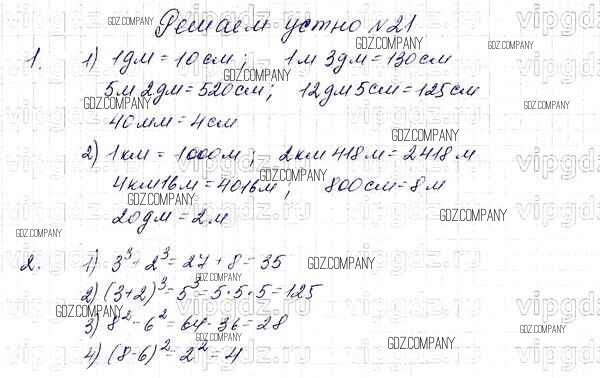 Решаем устно №21
1. 1) 1дм = 10см; 1м 3дм = 130см
5м 2дм = 520см; 12дм 5см = 125см
40мм = 4см
2) 1км = 1000м; 2км 418м = 2418м
4км16м = 4016м; 800см = 8м
20дм = 2м
2. 1) 3³ + 2³ = 27 + 8 = 35
2) (3+2)³ = 5³ = 5·5·5 = 125
3) 8² - 6² = 64 - 36 = 28
4) (8-6)² = 2² = 4
GDZ.COMPANY
vipgdz.ru